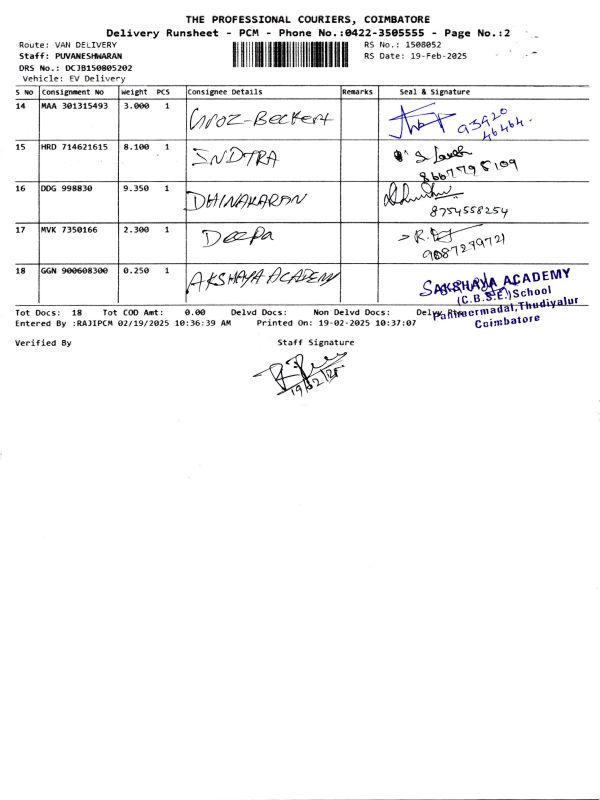 THE PROFESSIONAL COURIERS, COIMBATORE
Delivery Runsheet - PCM - Phone No.:0422-3505555 - Page No.:2
Route: VAN DELIVERY RS No.: 1508052
Staff: PUVANESHWARAN RS Date: 19-Feb-2025
DRS No.: DCJB150805202
Vehicle: EV Delivery
S No Consignment No Weight PCS Consignee Details Remarks Seal & Signature
14 MAA 301315493 3.000 1 Groz-Beckert 93920
46464.
15 HRD 714621615 8.100 1 INDTRA
8667798109
16 DDG 998830 9.350 1 DHINAKARAN
8754558254
17 MVK 7350166 2.300 1 Deepa
9087279721
18 GGN 900608300 0.250 1 AKSHAYA ACADEMY
AKSHAYA ACADEMY
(C.B.S.E.) School
Panneermadai, Thudiyalur
Coimbatore
Tot Docs: 18 Tot COD Amt: 0.00 Delvd Docs: Non Delvd Docs:
Entered By :RAJIPCM 02/19/2025 10:36:39 AM Printed On: 19-02-2025 10:37:07
Verified By Staff Signature
19/02/25